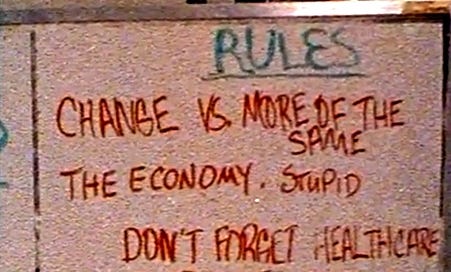 RULES
CHANGE VS. MORE OF THE
SAME
THE ECONOMY. STUPID
DON'T FORGET HEALTHCARE